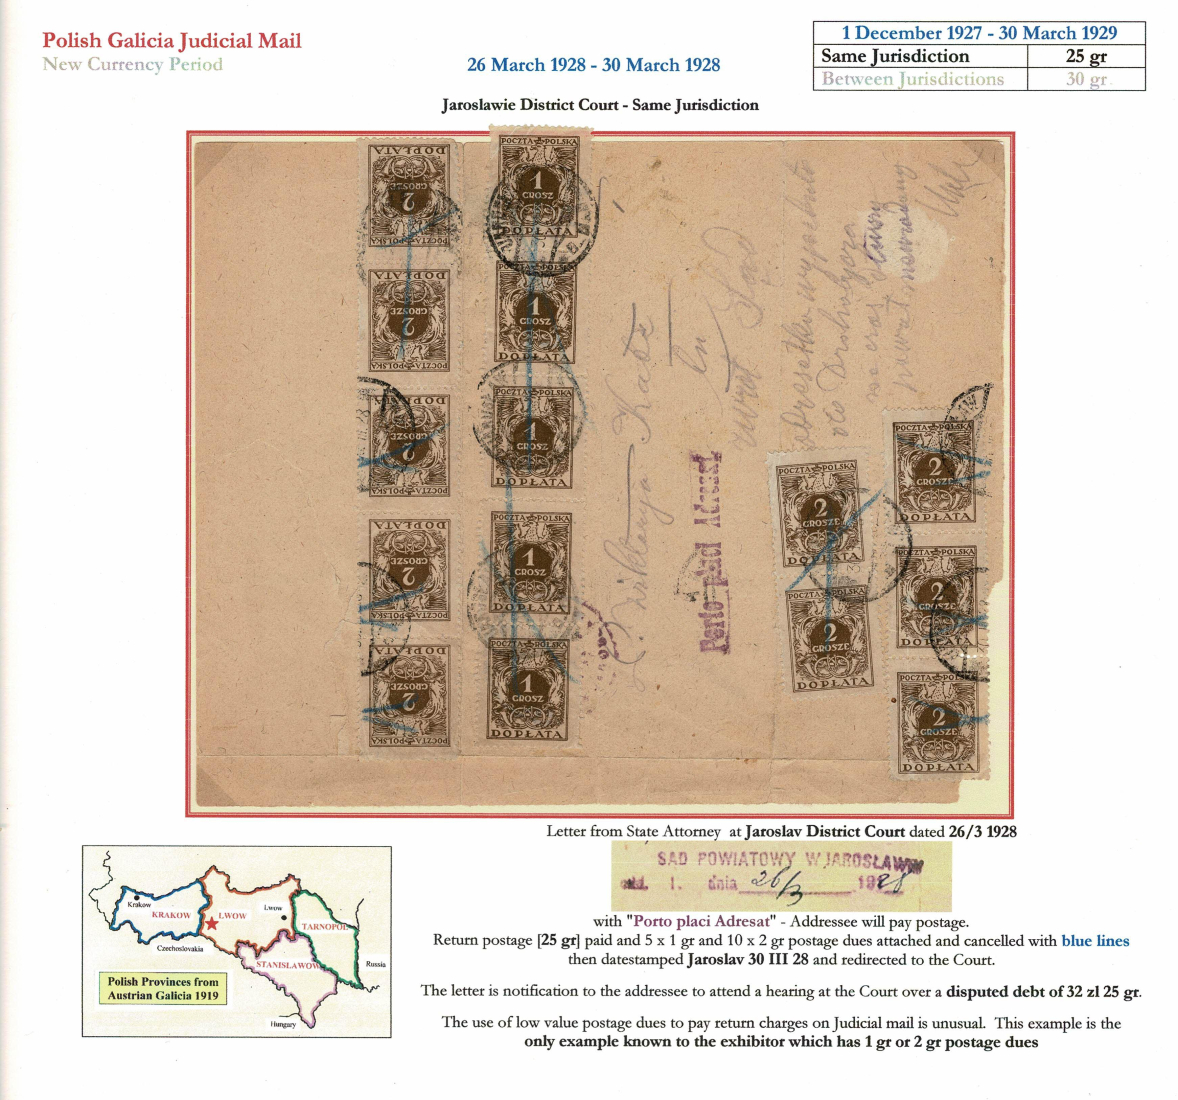 Polish Galicia Judicial Mail
New Currency Period
26 March 1928 - 30 March 1928
1 December 1927 - 30 March 1929
Same Jurisdiction 25 gr
Between Jurisdictions 30 gr.
Jaroslawie District Court - Same Jurisdiction
POCZTA POLSKA
2
GROSZE
DOPŁATA
POCZTA POLSKA
2
GROSZE
DOPŁATA
POCZTA POLSKA
2
GROSZE
DOPŁATA
POCZTA POLSKA
2
GROSZE
DOPŁATA
POCZTA POLSKA
2
GROSZE
DOPŁATA
POCZTA POLSKA
1
GROSZ
DOPŁATA
POCZTA POLSKA
1
GROSZ
DOPŁATA
POCZTA POLSKA
1
GROSZ
DOPŁATA
POCZTA POLSKA
1
GROSZ
DOPŁATA
POCZTA POLSKA
1
GROSZ
DOPŁATA
Porto płaci Adresat
POCZTA POLSKA
2
GROSZE
DOPŁATA
POCZTA POLSKA
2
GROSZE
DOPŁATA
POCZTA POLSKA
2
GROSZE
DOPŁATA
POCZTA POLSKA
2
GROSZE
DOPŁATA
POCZTA POLSKA
2
GROSZE
DOPŁATA
Letter from State Attorney at Jaroslav District Court dated 26/3 1928
SĄD POWIATOWY W JAROSŁAWIU
1. dnia 26/3 1928
with "Porto placi Adresat" - Addressee will pay postage.
Return postage [25 gr] paid and 5 x 1 gr and 10 x 2 gr postage dues attached and cancelled with blue lines
then datestamped Jaroslav 30 III 28 and redirected to the Court.
The letter is notification to the addressee to attend a hearing at the Court over a disputed debt of 32 zl 25 gr.
The use of low value postage dues to pay return charges on Judicial mail is unusual. This example is the
only example known to the exhibitor which has 1 gr or 2 gr postage dues
Krakow
KRAKOW
LWOW
Lwow
TARNOPOL
Czechoslovakia
STANISLAWOW
Russia
Polish Provinces from
Austrian Galicia 1919
Hungary